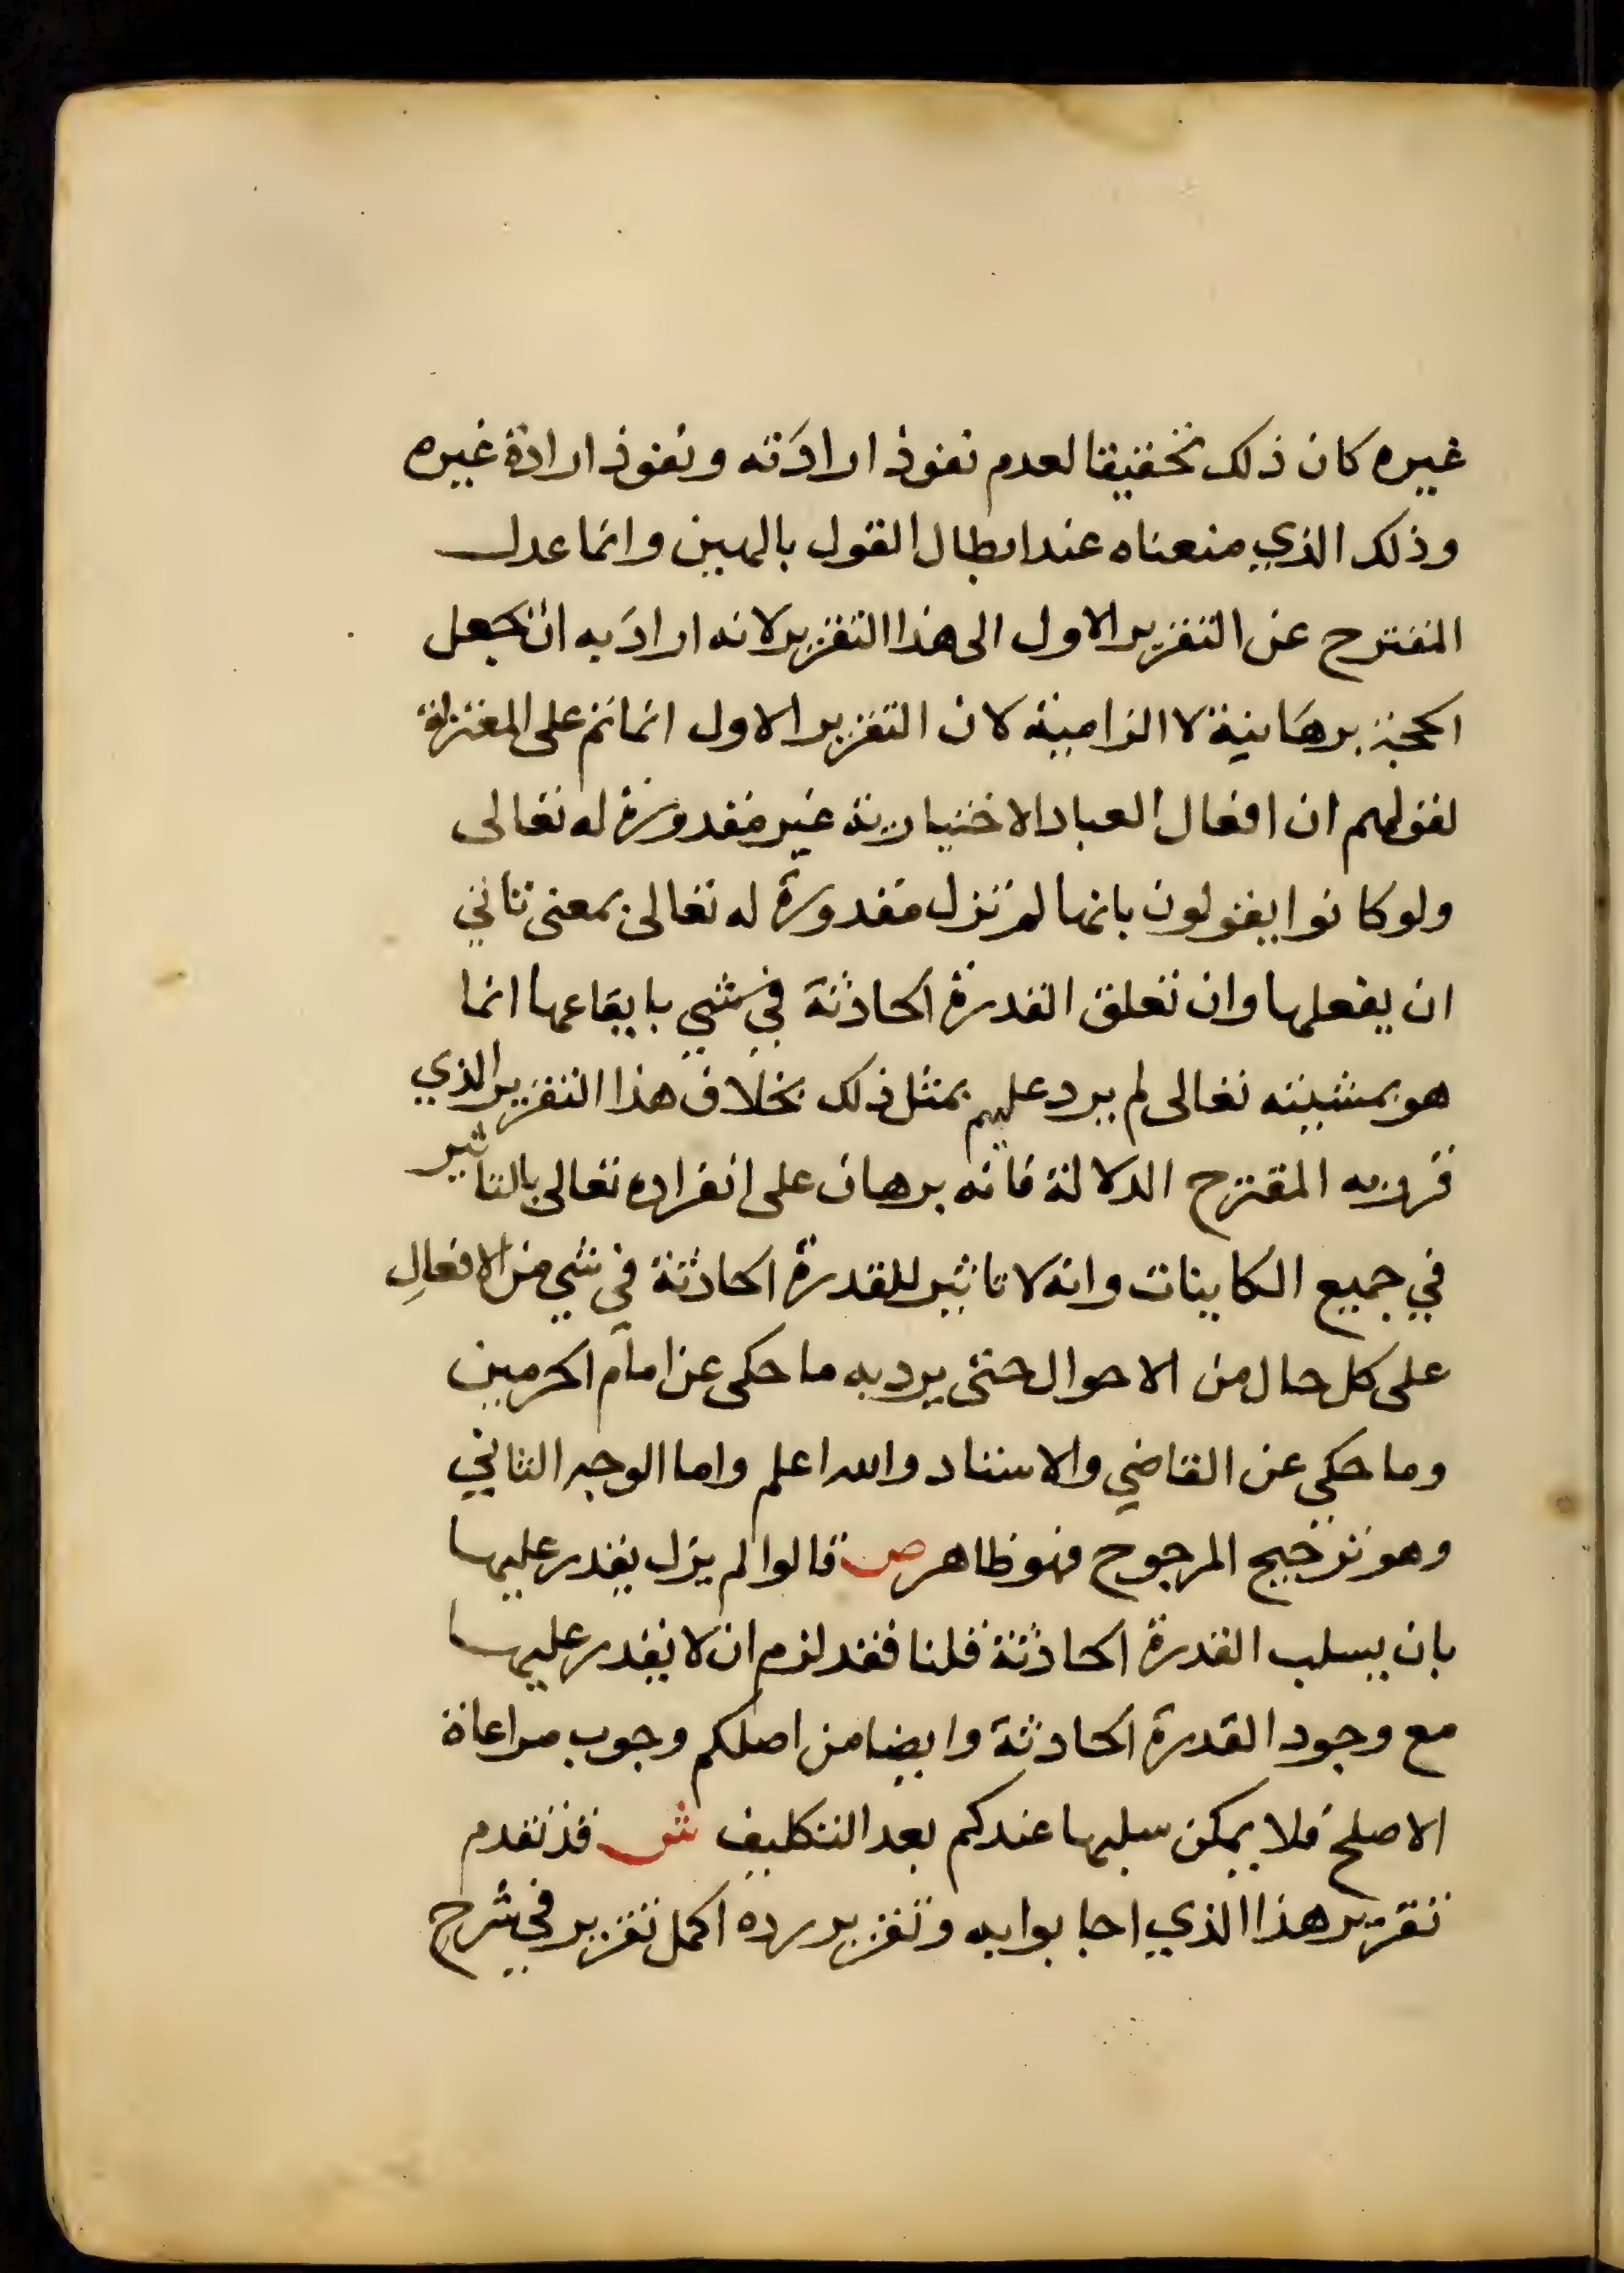 غيره كان ذلك تحقيقا لعدم نفوذ ارادته ونفوذ ارادة غيره
وذلك الذي منعناه عند ابطال القول بالهين وانما عدل
المقترح عن التقرير الاول الى هذا التقرير لانه اراد به ان يجعل
الحجة برهانية لا الزامية لان التقرير الاول انما تم على المعتزلة
لقولهم ان افعال العباد الاختيارية غير مقدورة له تعالى
ولو كانوا يقولون بانها لم تزل مقدورة له تعالى بمعنى تاتي
ان يفعلها وان تعلق القدرة الحادثة في شي بايقاعها انما
هو بمشيئته تعالى لم يرد عليهم بمثل ذلك بخلاف هذا التقرير الذي
قرر به المقترح الدلالة فانه برهان على انفراده تعالى بالتاثير
في جميع الكاينات وانه لا تاثير للقدرة الحادثة في شي من الافعال
على كل حال من الاحوال حتى يرد به ما حكى عن امام الحرمين
وما حكي عن القاضي والاستاد والله اعلم واما الوجه الثاني
وهو ترجيح المرجوح فهو ظاهر ص قالوا لم يزل يقدر عليها
بان يسلب القدرة الحادثة قلنا فقد لزم ان لا يقدر عليها
مع وجود القدرة الحادثة وايضا من اصلكم وجوب مراعاة
الاصلح فلا يمكن سلبها عندكم بعد التكليف ش قد تقدم
تقرير هذا الذي اجابوا به وتقرير رده اكمل تقرير في شرح